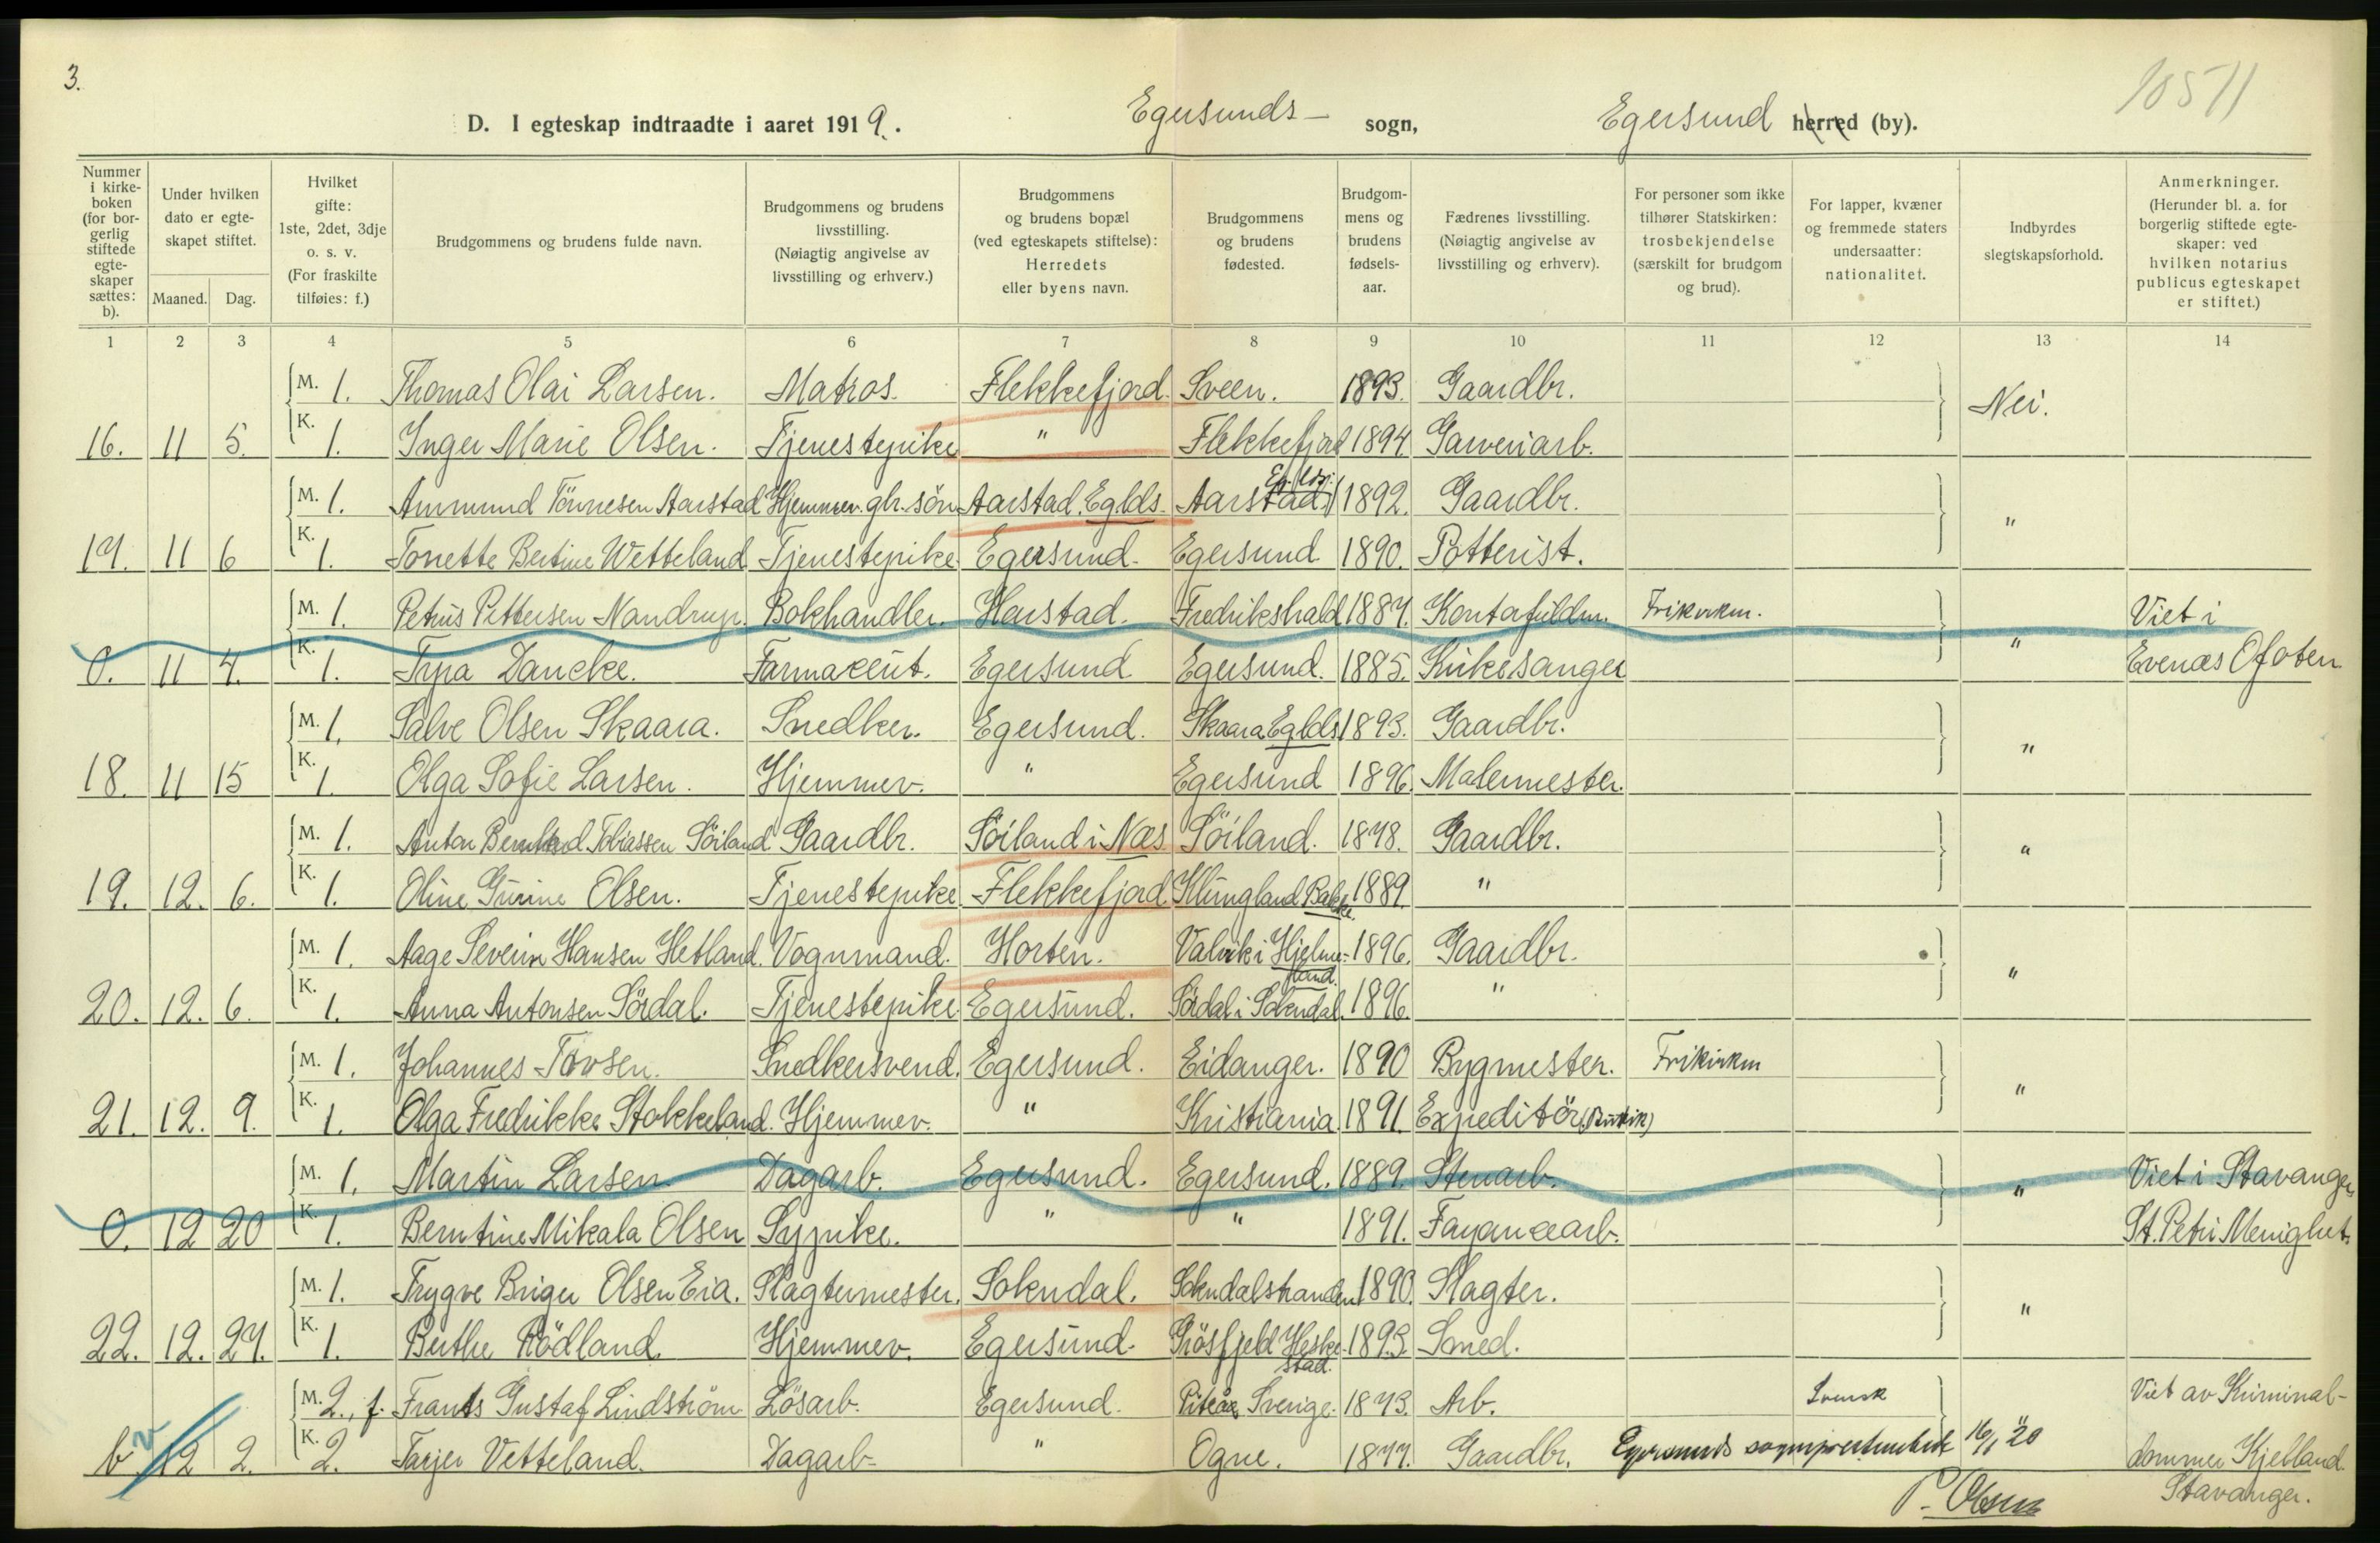 3.
10511
D. I egteskap indtraadte i aaret 1919. Egersunds sogn, Egersund herred (by).
Nummer i kirke-boken (for bor-gerlig stiftede egte-skaper sættes: b).
Under hvilken dato er egte-skapet stiftet.
Maaned. Dag.
Hvilket gifte: 1ste, 2det, 3dje o. s. v. (For fraskilte tilføies: f.)
Brudgommens og brudens fulde navn.
Brudgommens og brudens livsstilling. (Nøiagtig angivelse av livsstilling og erhverv.)
Brudgommens og brudens bopæl (ved egteskapets stiftelse): Herredets eller byens navn.
Brudgommens og brudens fødested.
Brudgom-mens og brudens fødsels-aar.
Fædrenes livsstilling. (Nøiagtig angivelse av livsstilling og erhverv).
For personer som ikke tilhører Statskirken: trosbekjendelse (særskilt for brudgom og brud).
For lapper, kvæner og fremmede staters undersaatter: nationalitet.
Indbyrdes slegtskapsforhold.
Anmerkninger. (Herunder bl. a. for borgerlig stiftede egte-skaper: ved hvilken notarius publicus egteskapet er stiftet.)
1 2 3 4 5 6 7 8 9 10 11 12 13 14
M. 1. Thomas Olai Larsen. Matros. Flekkefjord. Sveen. 1893. Gaardbr. Nei.
16. 11 5. K. 1. Inger Marie Olsen. Tjenestepike " Flekkefjord 1894 Garveriarb.
M. 1. Ammund Tönnesen Aarstad Hjemmev. gbr. sön Aarstad, Eglds. Aarstad, Eglds. 1892. Gaardbr. "
17. 11 6 K. 1. Tonette Bertine Wetteland Tjenestepike. Egersund. Egersund 1890. Potterist.
M. 1. Petrus Pettersen Nandrup. Bokhandler. Harstad. Fredrikshald 1887. Kontorfuldm. Frikirkm. " Viet i
0. 11 4. K. 1. Tyra Dancke. Farmaceut. Egersund Egersund. 1885. Kirkesanger Evenæs Ofoten
M. 1. Salve Olsen Skaara. Snedker. Egersund. Skaara Eglds. 1893. Gaardbr. "
18. 11 15 K. 1. Olga Sofie Larsen. Hjemmev. " Egersund 1896. Malermester.
M. 1. Anton Bernhard Tobiassen Söiland Gaardbr. Söiland i Næs. Söiland. 1878. Gaardbr. "
19. 12. 6. K. 1. Oline Gurine Olsen. Tjenestepike Flekkefjord Klungland Bakke. 1889. "
M. 1. Aage Severin Hansen Hetland. Vognmand. Horten. Valvik i Hjelme-land. 1896. Gaardbr. "
20. 12. 6. K. 1. Anna Antonsen Sördal. Tjenestepike Egersund. Sördal i Sokndal. 1896. "
M. 1. Johannes Tovsen. Snedkersvend. Egersund. Eidanger. 1890 Bygmester. Frikirkm "
21. 12. 9. K. 1. Olga Fredrikke Stokkeland. Hjemmev. " Kristiania 1891. Expeditör (Butik)
M. 1. Martin Larsen. Dagarb. Egersund. Egersund. 1889. Stenarb. " Viet i Stavanger,
0. 12 20 K. 1. Berntine Mikala Olsen Sypike. " " 1891. Fayancearb. St. Petri Menighet.
M. 1. Trygve Briger Olsen Eia. Slagtermester. Sokndal. Sokndalstranden 1890. Slagter. "
22. 12. 27. K. 1. Berthe Rödland. Hjemmev. Egersund. Grösfjeld Heske-stad. 1893. Smed.
M. 2., f. Frants Gustaf Lindström Lösarb. Egersund. Piteå, Sverige. 1873. Arb. Svensk " Viet av Kriminal-
b 12 2. K. 2. Tarjer Vetteland. Dagarb. " Ogne. 1877. Gaardbr. Egersunds sogneprestembede 16/1 20 dommer Kjelland
P. Olsen Stavanger.